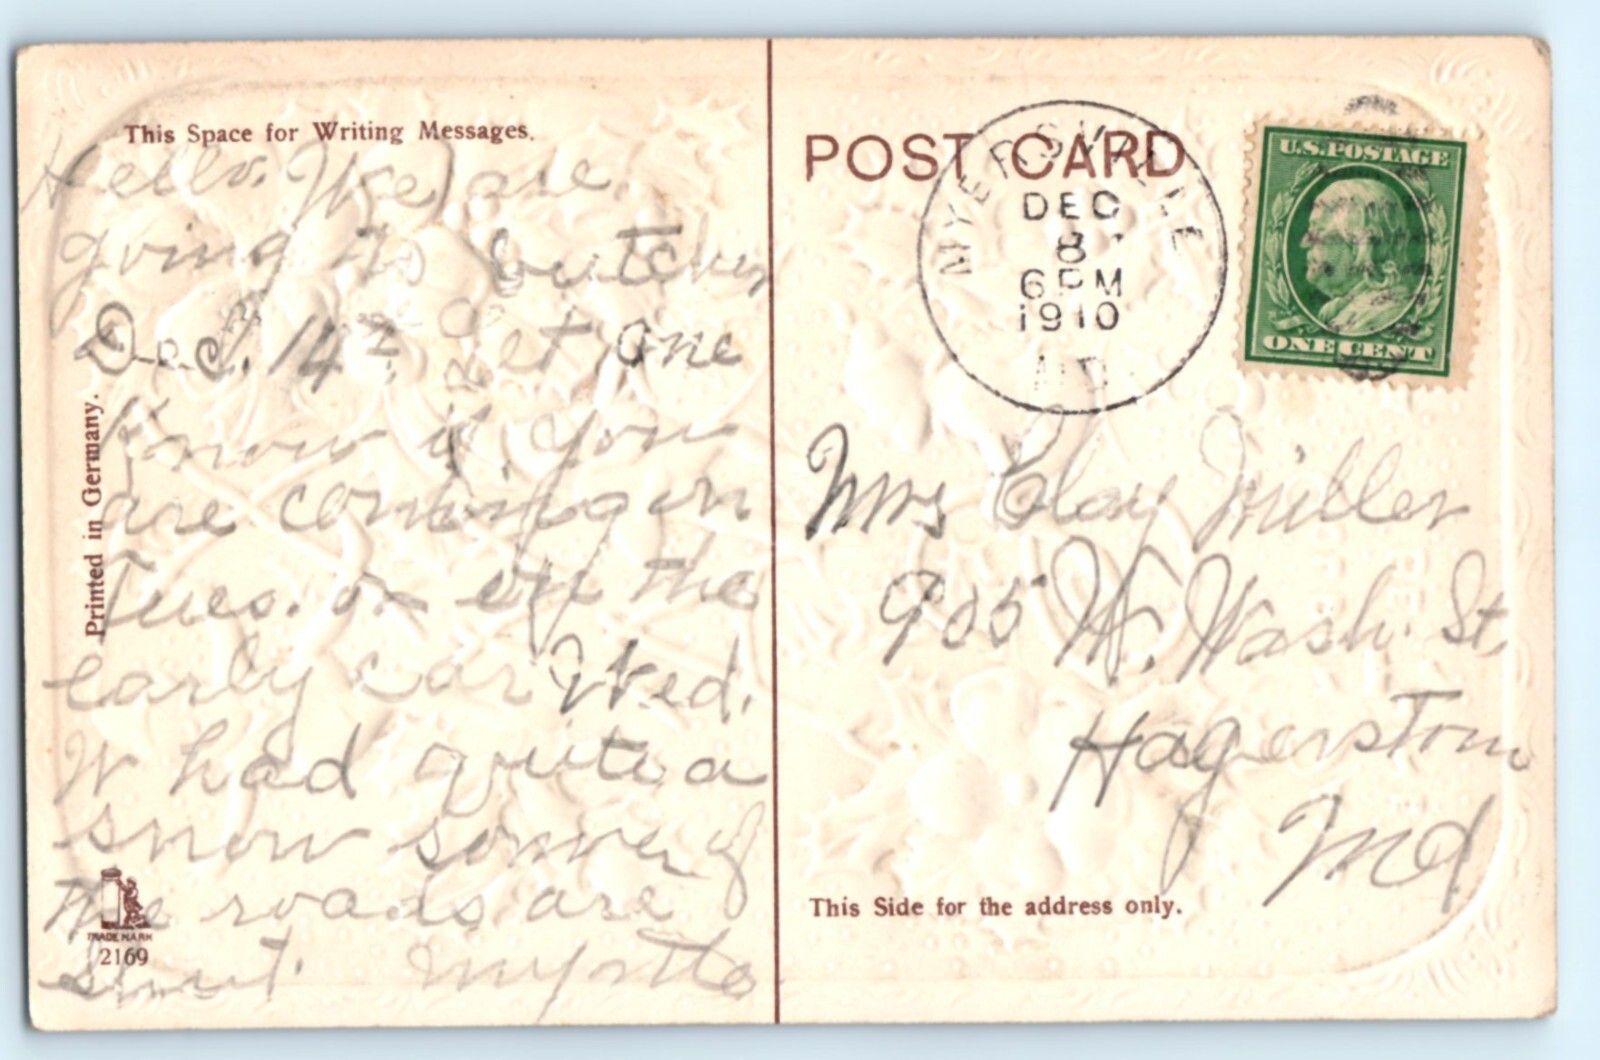 This Space for Writing Messages.
Hello. We are
going to butcher
Dec. 14th. Let me
Know if you
are coming on
Tues. or on the
early car Wed.
W had quite a
snow some of
the roads are
shut. Myrtle
Printed in Germany.
TRADE MARK
2169
POST CARD
MYERSVILLE
DEC
8
6 PM
1910
MD.
U.S. POSTAGE
ONE CENT
Mrs Clay Miller
905 W. Wash. St.
Hagerstown
Md
This Side for the address only.